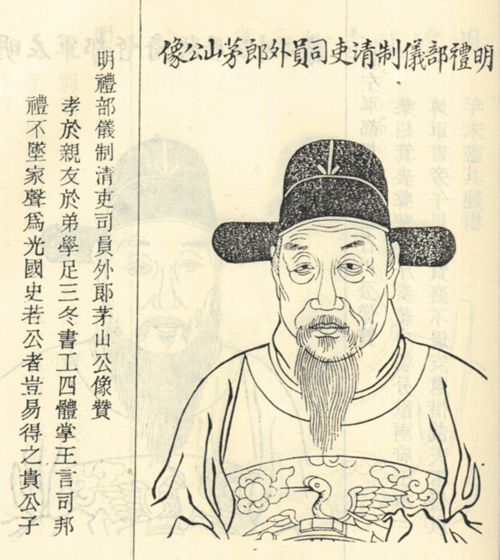 明禮部儀制清吏司員外郎茅山公像
明禮部儀制清吏司員外郞茅山公像贊
孝於親友於弟學足三冬書工四體掌王言司邦
禮不墜家聲爲光國史若公者豈易得之貴公子